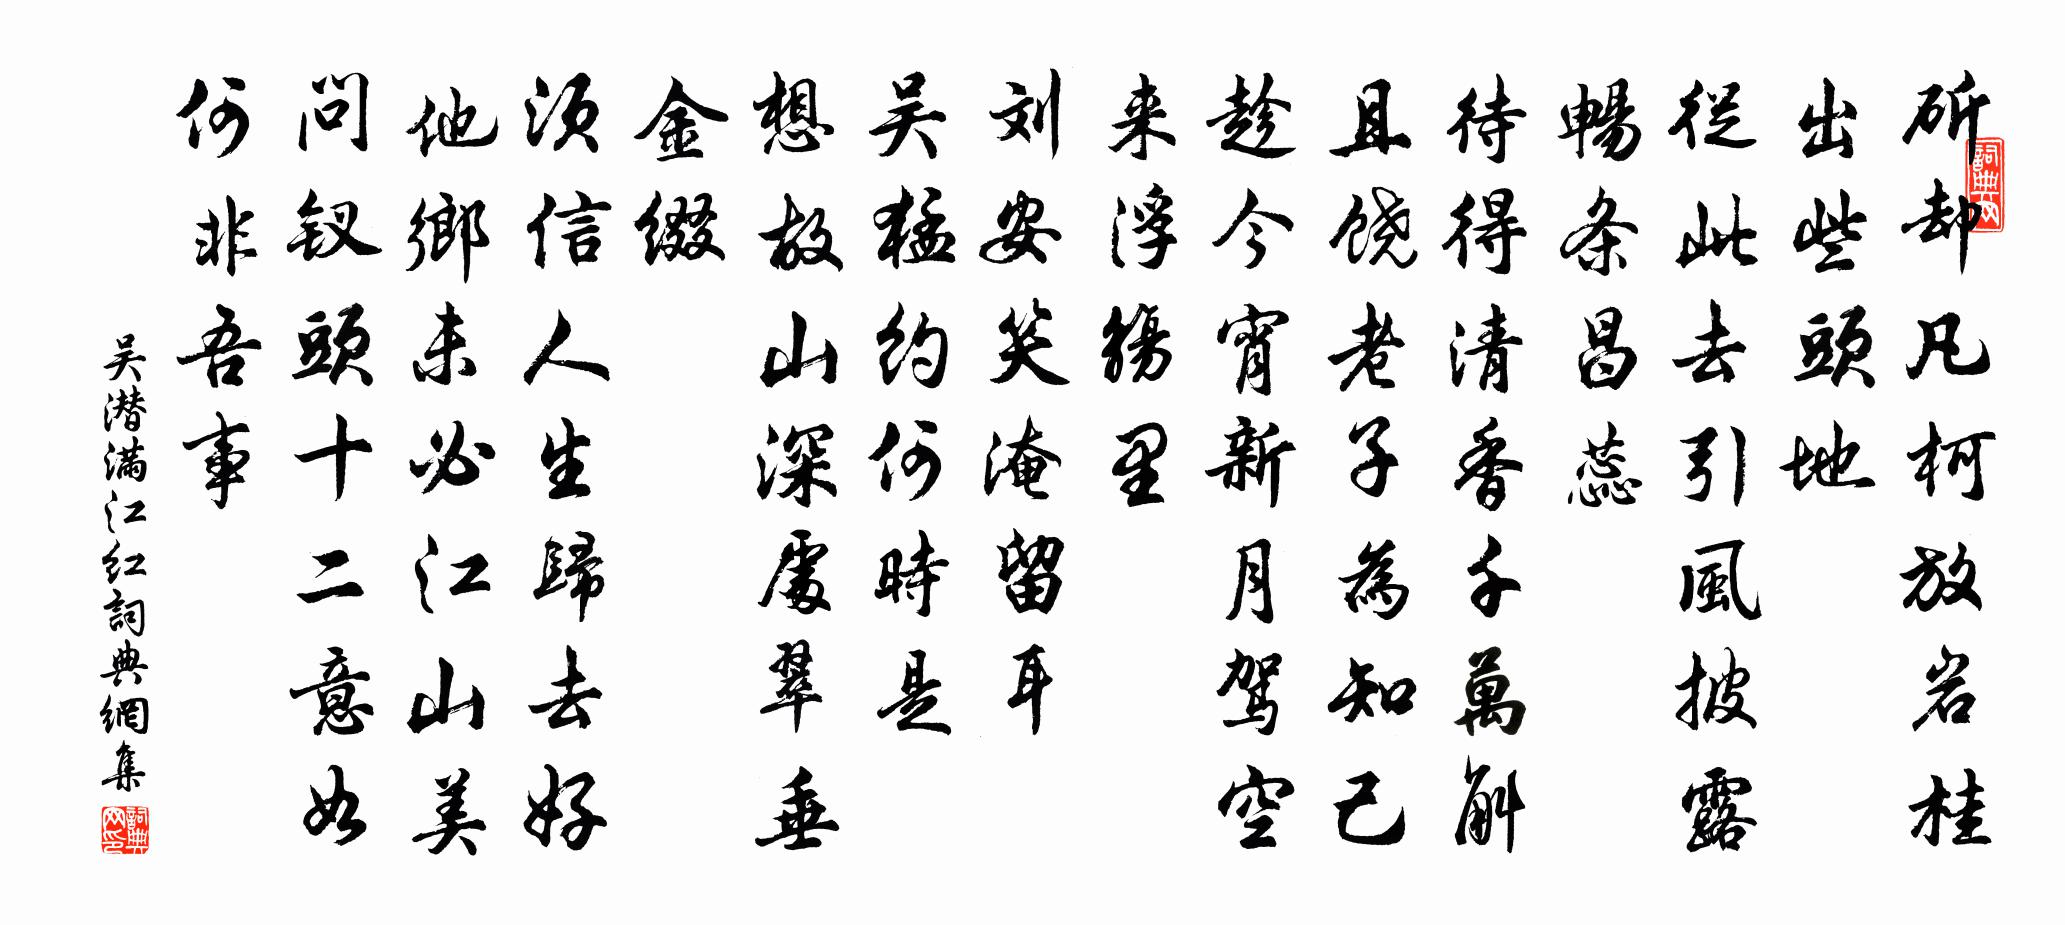 斫却凡柯放岩桂
出些頭地
從此去引風披露
暢条昌蕊
待得清香千萬斛
且饶老子為知己
趁今宵新月驾空
来浮觴里
刘安笑淹留耳
吴猛约何時是
想故山深處翠垂
金缀
须信人生歸去好
他鄉未必江山美
问钗頭十二意如
何非吾事
吴潜满江红詞典網集
詞典网
詞典网印